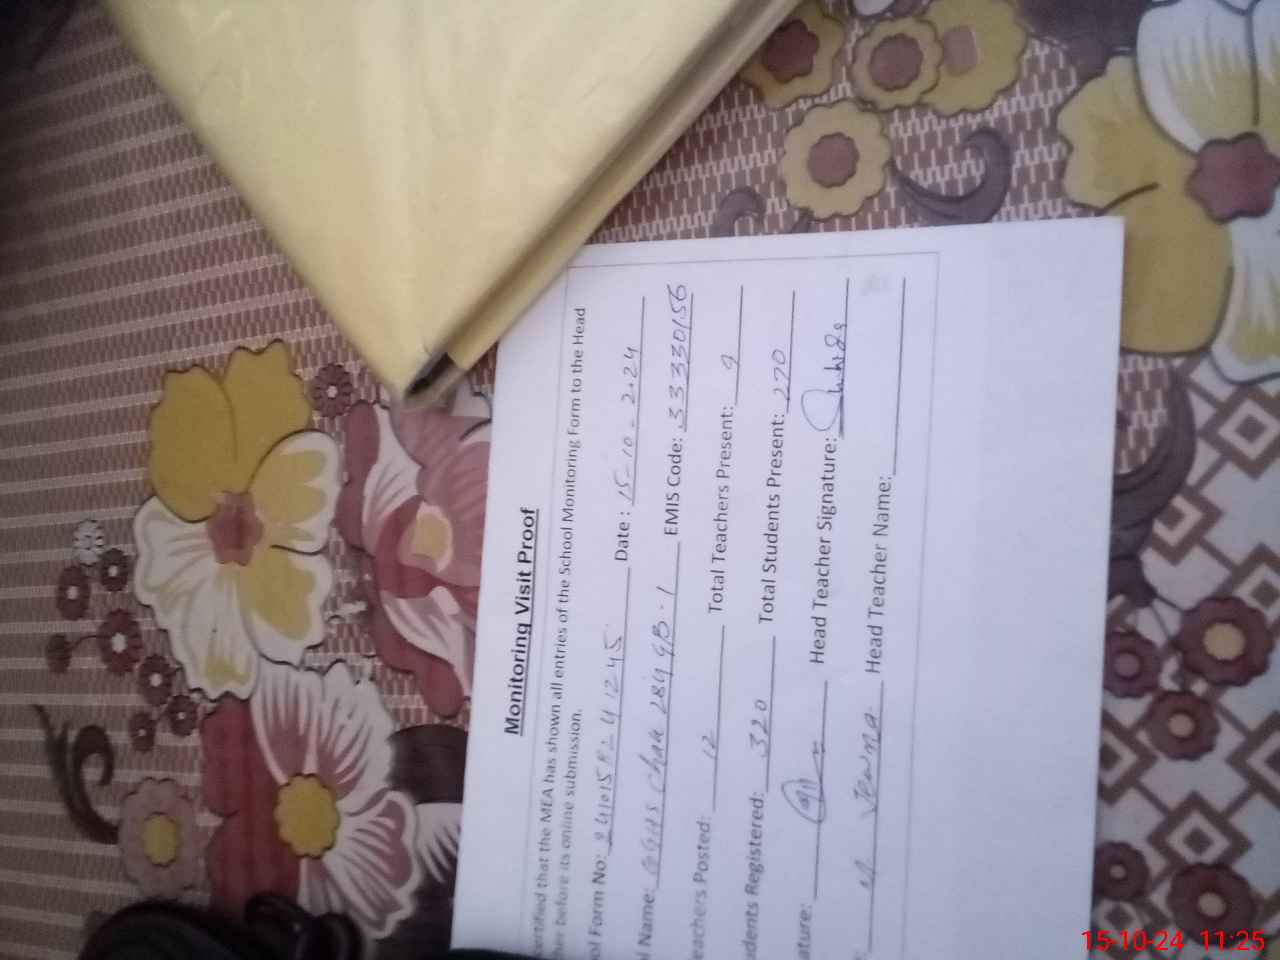 Monitoring Visit Proof
ertified that the MEA has shown all entries of the School Monitoring Form to the Head
her before its online submission.
ol Form No: Date : 15-10-2024
l Name: GGHS Chak 284 GB.1 EMIS Code: 33330156
eachers Posted: 12 Total Teachers Present: 9
dents Registered: 320 Total Students Present: 270
ature: Head Teacher Signature:
: Head Teacher Name:
15-10-24 11:25